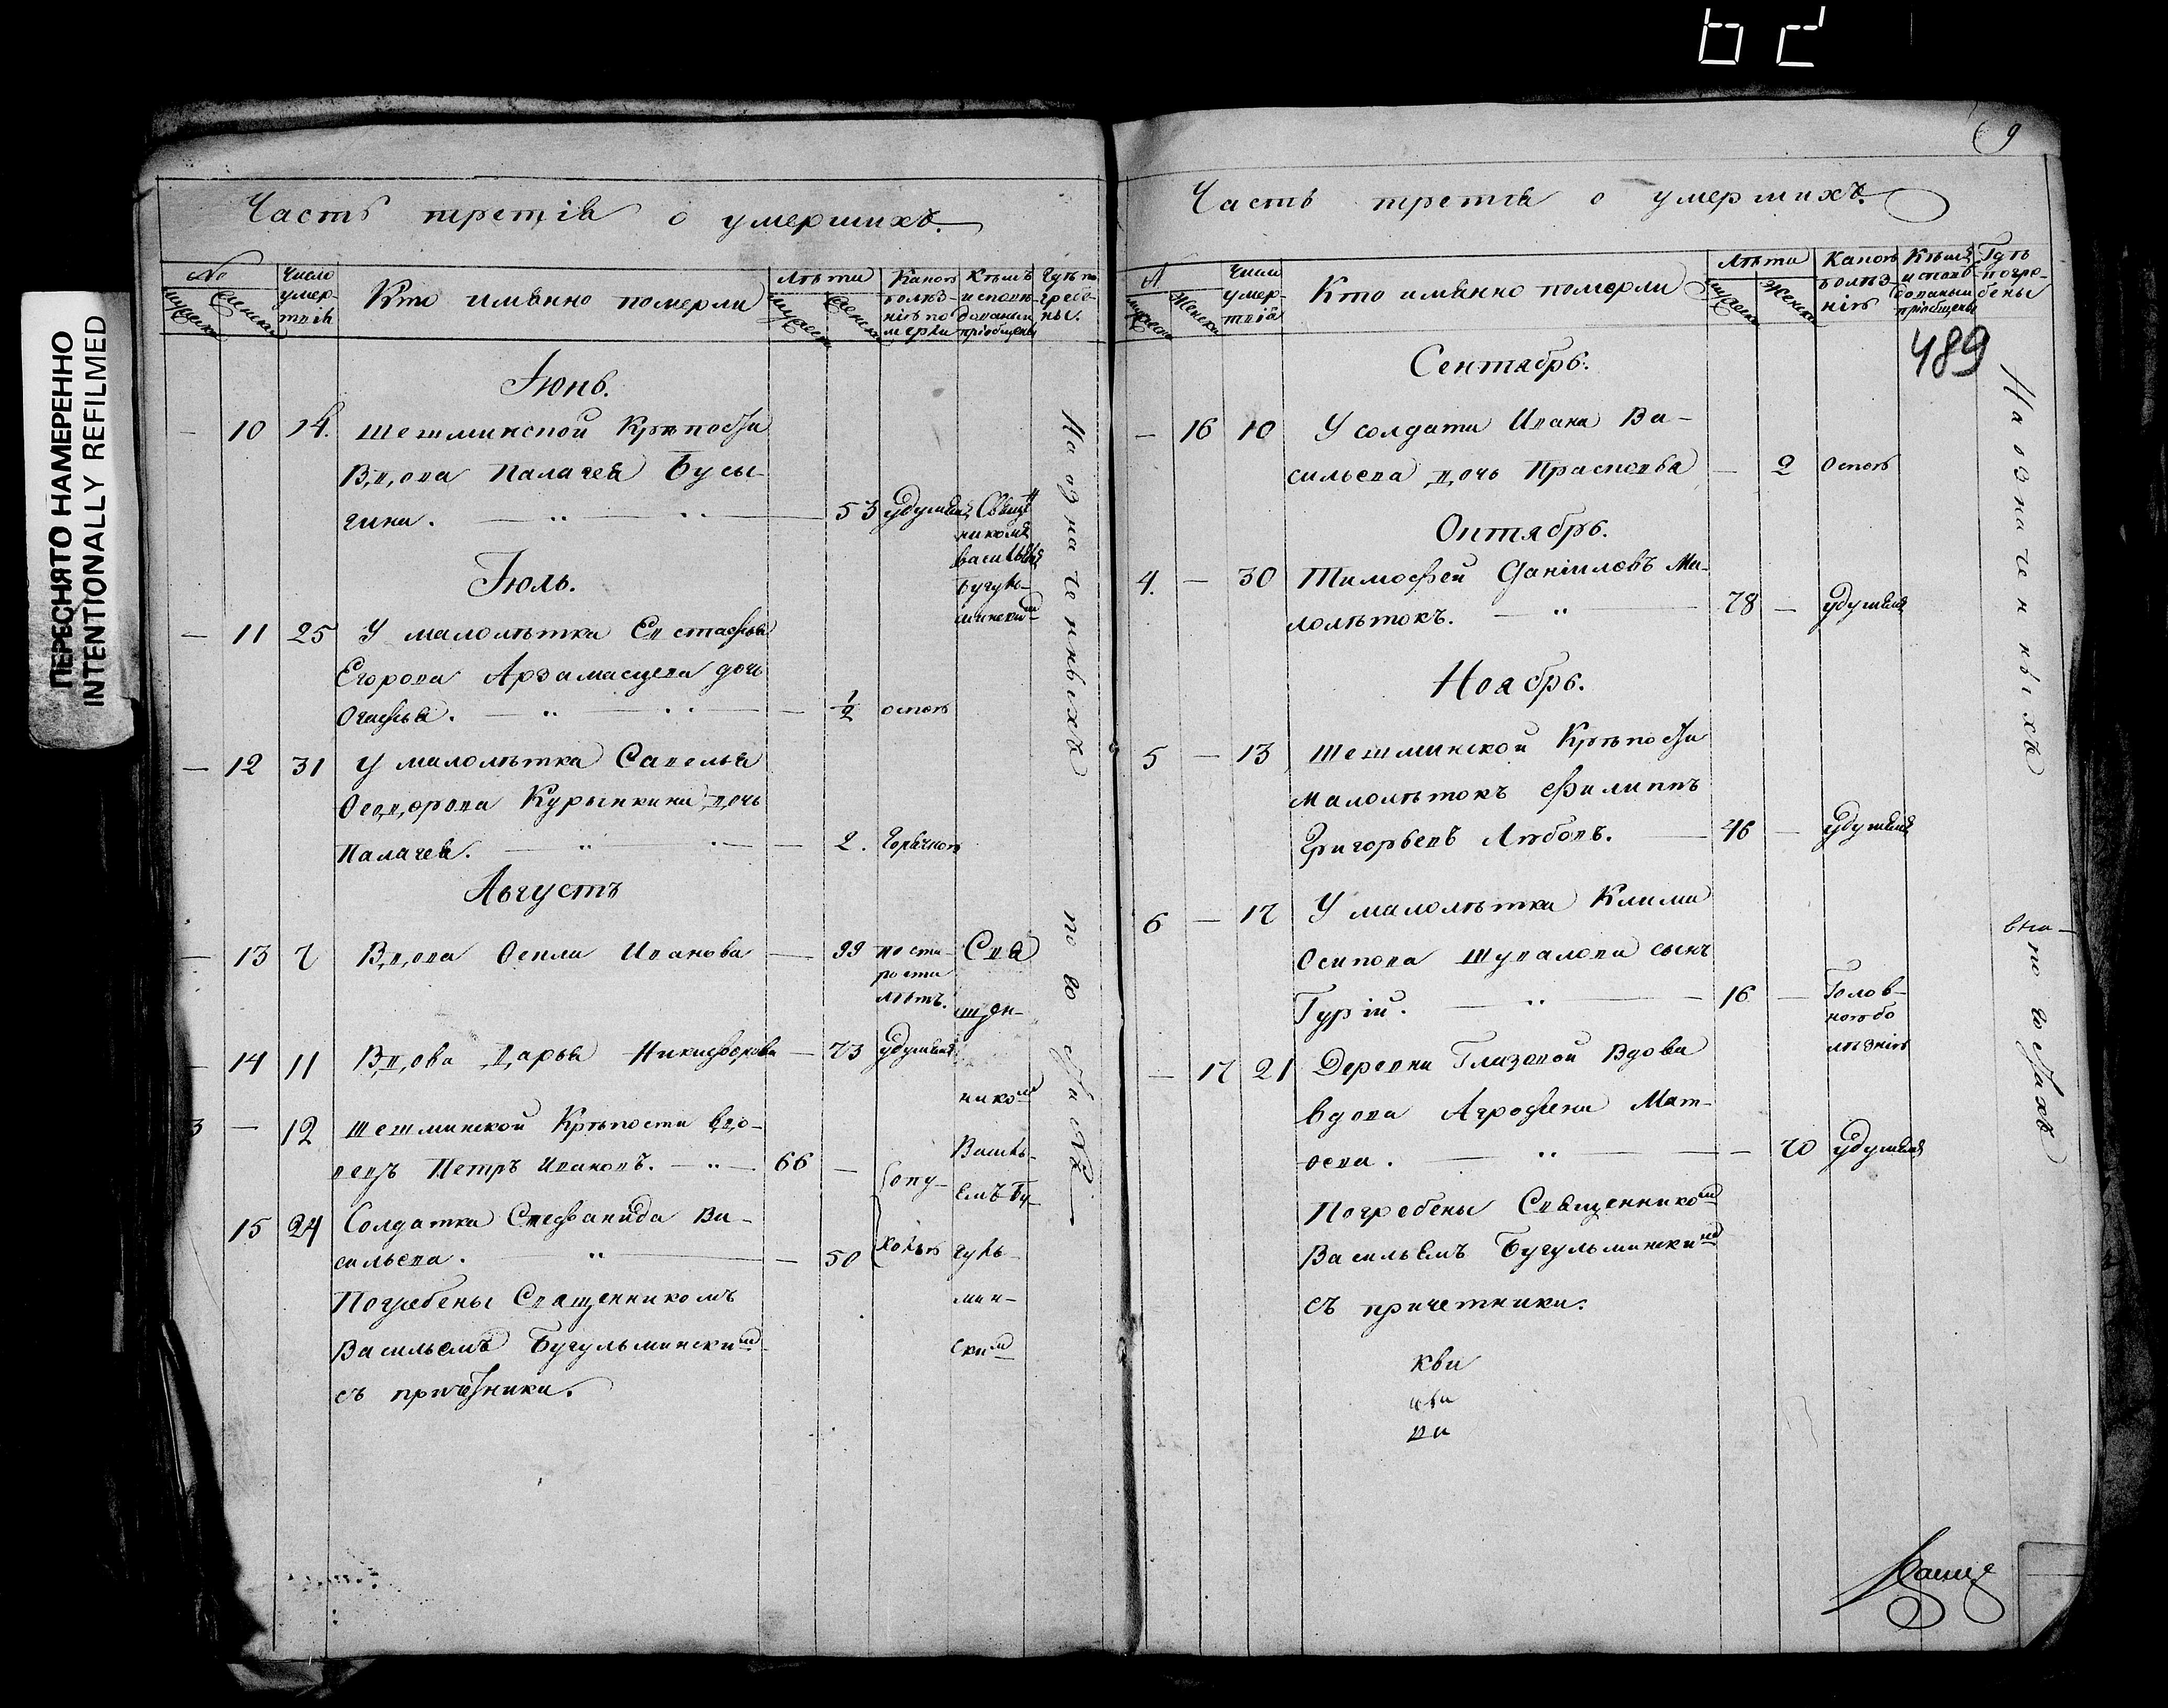 ПЕРЕСНЯТО НАМЕРЕННО
INTENTIONALLY REFILMED
Часть третія о умершихъ.
№
мужеска
женска
Число умер-
твія
Кто имянно померли
Лѣта
мужеска
женска
Какою
болѣз-
нію по
мерли
Кѣмъ
исповѣ-
дованы и
пріобщены
Гдѣ по
гребе-
ны.
Іюнь.
— 10 14. Шешминской Крѣпости
Вдова Палагея Бусы-
гина. — 53 удушьемъ Свяще
никомъ
Васильемъ
Бугуль-
минским
Іюль.
— 11 25 У малолѣтка Евстафья
Егорова Арзамасцева дочь
Агафья. — ½ оспою
— 12 31 У малолѣтка Савелья
Ѳеодорова Курынкина дочь
Палагея. — 2. Горячкою
Августъ
— 13 7 Вдова Ѳекла Иванова — 99 по ста-
рости
лѣтъ.
Свя
щен-
— 14 11 Вдова Дарья Никифорова — 73 удушьемъ
ником
3 — 12 Шешминской Крѣпости вдо-
вецъ Петръ Ивановъ. — 66 —
Василь-
емъ Бу-
15 24 Солдатка Стефанида Ва-
сильева. — 50
Опу-
холью
гуль-
мин-
ским
Погребены Священникомъ
Васильемъ Бугульминским
съ причетники.
На означенныхъ
по
9
Часть третія о умершихъ.
мужеска
женска
Число
умер-
твія
Кто имянно померли
Лѣта
мужеска
женска
Какою
болѣз-
нію
Кѣмъ
исповѣ-
дованы и
пріобщены
Гдѣ
погре-
бены
489
Сентябрь.
— 16 10 У солдата Ивана Ва-
сильева дочь Прасковья — 2 Оспою
Октябрь.
4. — 30 Тимофей Даніиловъ Ма-
лолѣтокъ. — 78 — удушьемъ
Ноябрь.
5 — 13 Шешминской Крѣпости
Малолѣтокъ Филиппъ
Григорьевъ Лябовъ. — 46 — удушьемъ
6 — 17 У малолѣтка Клима
Осипова Шувалова сынъ
Гурій. — 16 — Голов-
ною бо
лѣзнію
— 17 21 Деревни Глазовой Вдова
вдова Агрофена Мат-
веева. — 70 удушьемъ
Погребены Священником
Васильемъ Бугульминским
съ причетники.
На означенныхъ